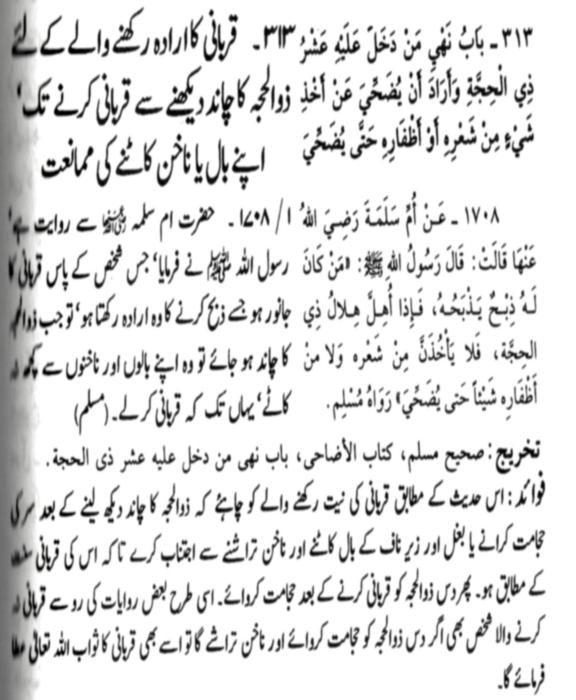 ۳۱۳ ـ بَابُ نَهْيِ مَنْ دَخَلَ عَلَيْهِ عَشْرُ
ذِي الْحِجَّةِ وَأَرَادَ أَنْ يُضَحِّيَ عَنْ أَخْذِ
شَيْءٍ مِنْ شَعْرِهِ أَوْ أَظْفَارِهِ حَتَّى يُضَحِّيَ
۳۱۳ ۔ قربانی کا ارادہ رکھنے والے کے لئے
ذوالحجہ کا چاند دیکھنے سے قربانی کرنے تک‘
اپنے بال یا ناخن کاٹنے کی ممانعت
۱۷۰۸ ـ عَنْ أُمِّ سَلَمَةَ رَضِيَ اللهُ
عَنْهَا قَالَتْ: قَالَ رَسُولُ اللهِ ﷺ: «مَنْ كَانَ
لَهُ ذِبْحٌ يَذْبَحُهُ، فَإِذَا أُهِلَّ هِلَالُ ذِي
الحِجَّة، فَلَا يَأْخُذَنَّ مِنْ شَعْره وَلا منْ
أَظْفَارِه شَيْئاً حَتى يُضَحِّيَ» رَوَاهُ مُسْلِم.
۱ / ۱۷۰۸ ۔ حضرت ام سلمہ رضی اللہ عنہا سے روایت ہے‘
رسول اللہ ﷺ نے فرمایا‘ جس شخص کے پاس قربانی کا
جانور ہو جسے ذبح کرنے کا وہ ارادہ رکھتا ہو‘ تو جب ذوالحجہ
کا چاند ہو جائے تو وہ اپنے بالوں اور ناخنوں سے کچھ نہ
کاٹے‘ یہاں تک کہ قربانی کر لے۔ (مسلم)
تخريج: صحيح مسلم، كتاب الأضاحى، باب نهى من دخل عليه عشر ذى الحجة.
فوائد: اس حدیث کے مطابق قربانی کی نیت رکھنے والے کو چاہئے کہ ذوالحجہ کا چاند دیکھ لینے کے بعد سر کی
حجامت کرانے یا بغل اور زیر ناف کے بال کاٹنے اور ناخن تراشنے سے اجتناب کرے تاکہ اس کی قربانی سنت
کے مطابق ہو۔ پھر دس ذوالحجہ کو قربانی کرنے کے بعد حجامت کروائے۔ اسی طرح بعض روایات کی رو سے قربانی نہ
کرنے والا شخص بھی اگر دس ذوالحجہ کو حجامت کروائے اور ناخن تراشے گا تو اسے بھی قربانی کا ثواب اللہ تعالیٰ عطا
فرمائے گا۔